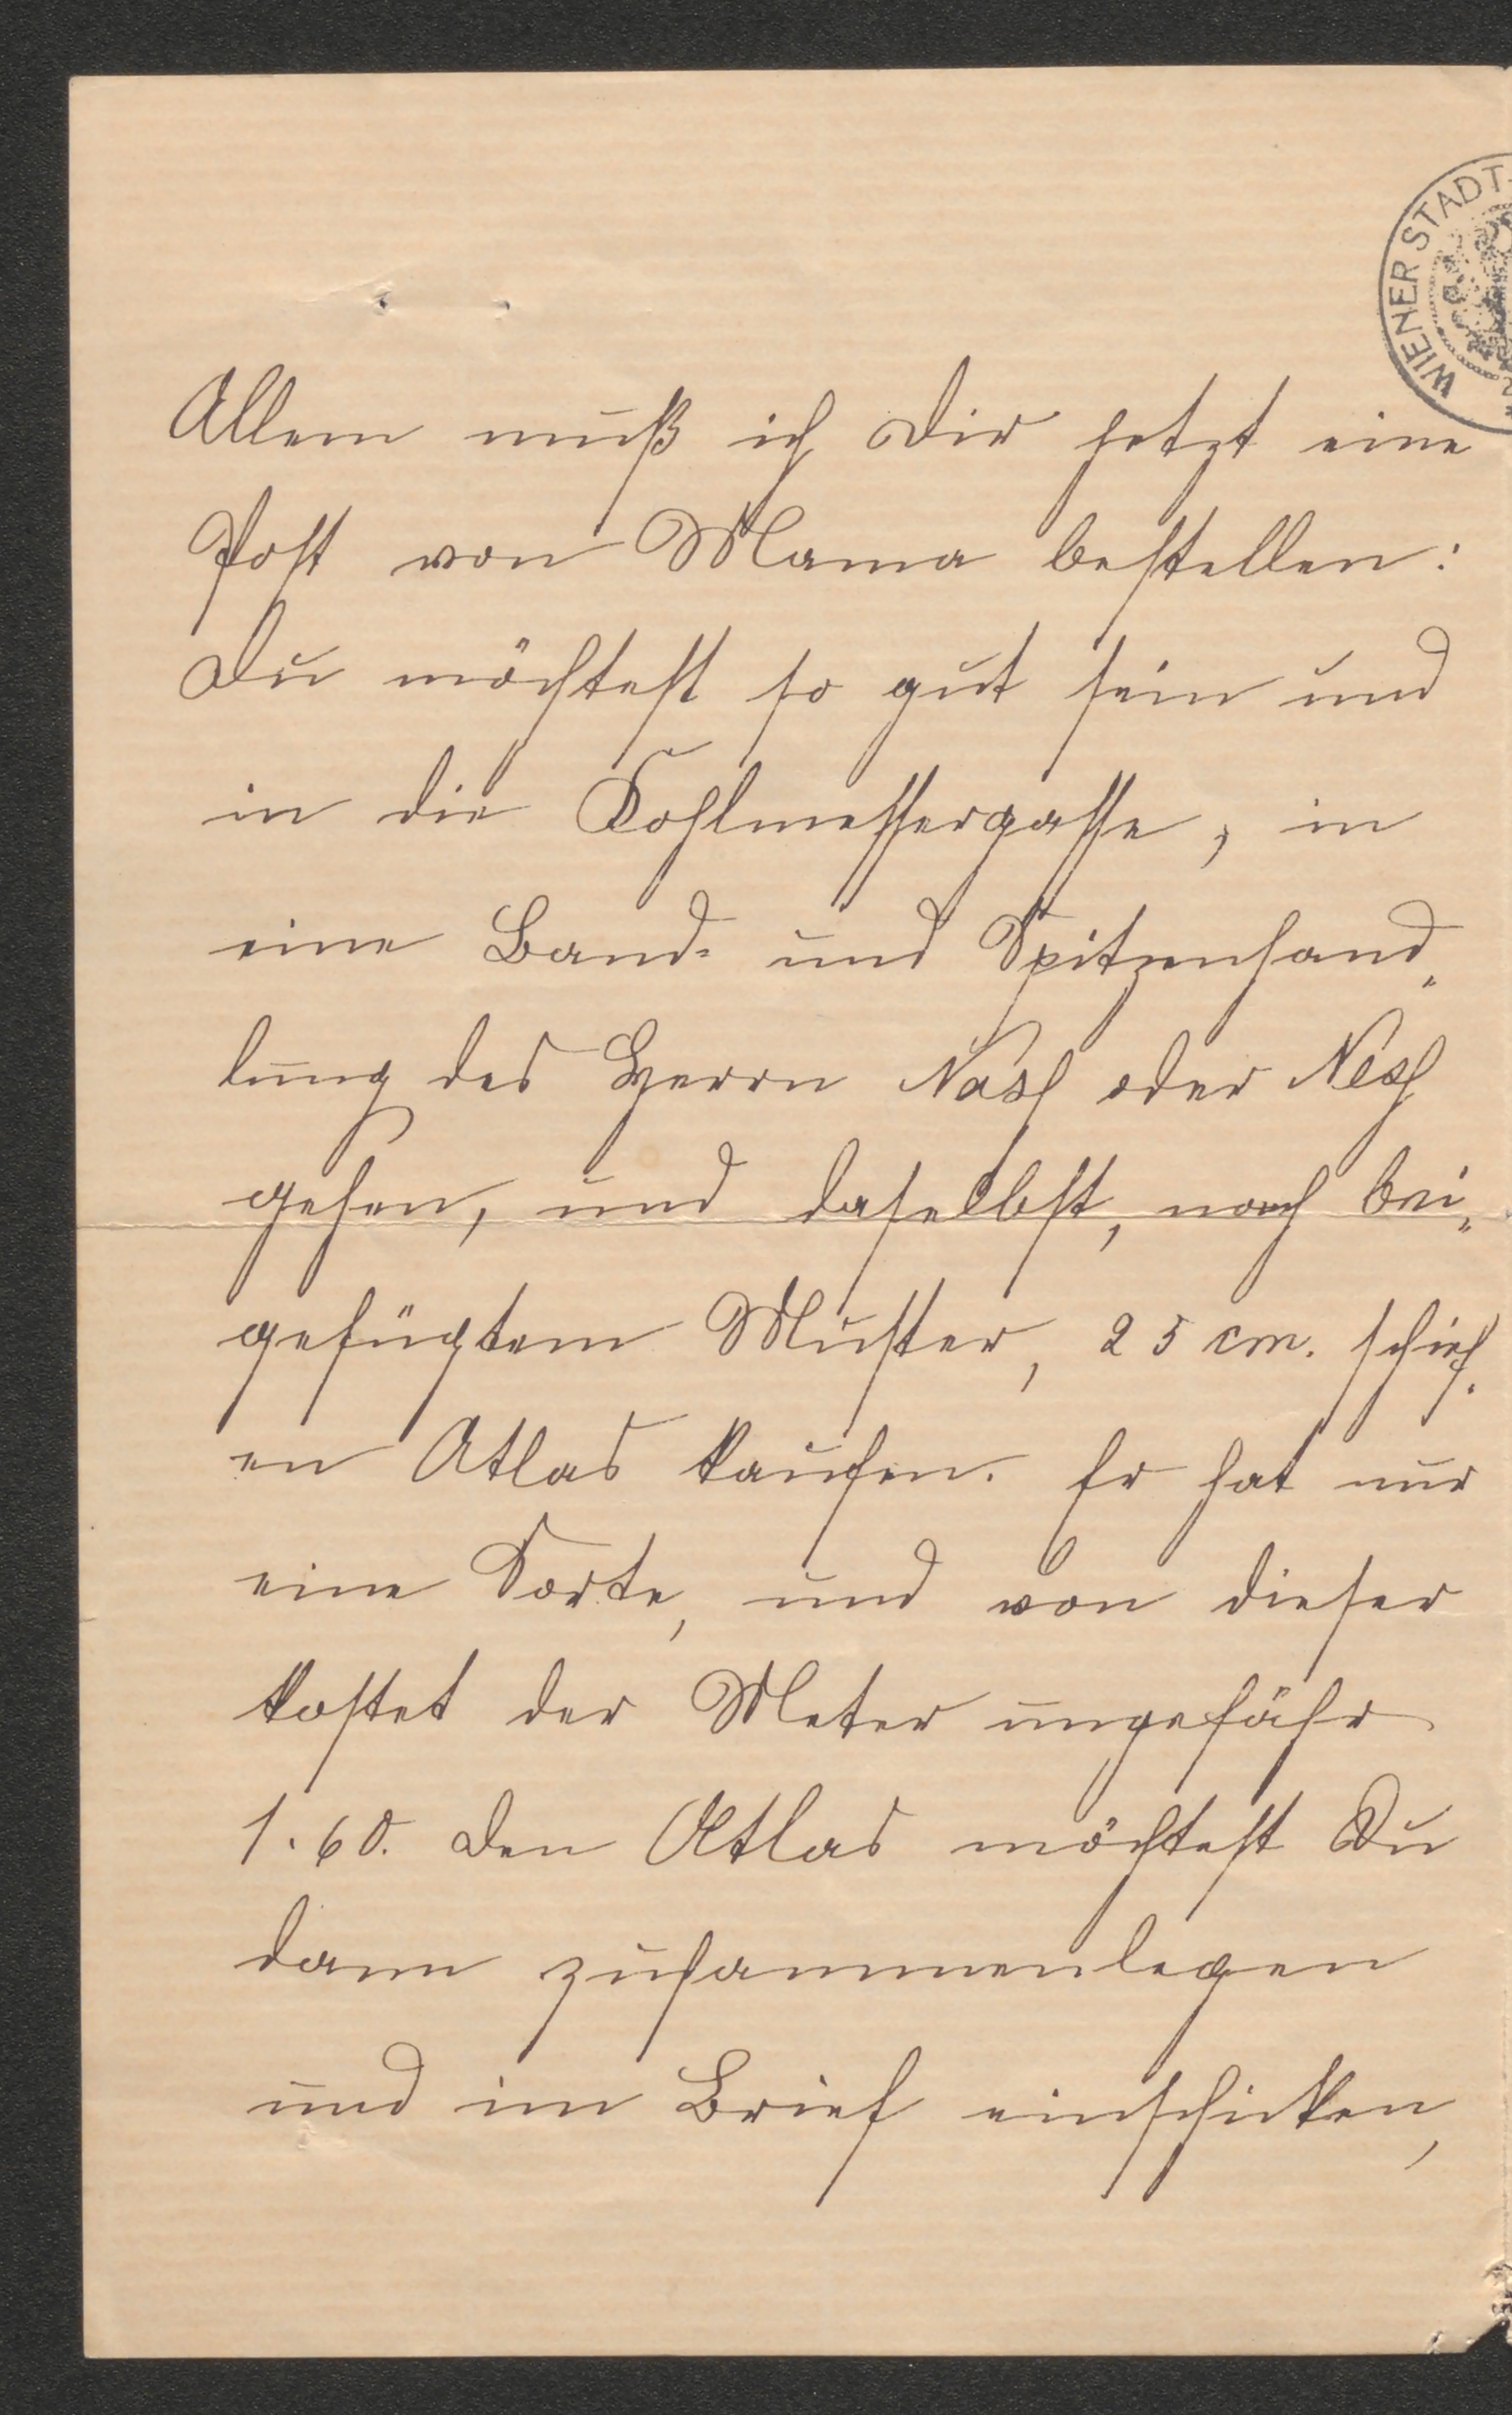 WIENER STADT-
Allem muß ich Dir jetzt eine
Post von Mama bestellen:
Du möchtest so gut sein und
in die Kohlmessergasse, in
eine Band- und Spitzenhand„
lung des Herrn Näsch oder Nesch
gehen, und daselbst, nach bei„
gefügtem Muster, 25 cm. schief„
en Atlas kaufen. Er hat nur
eine Sorte, und von dieser
kostet der Meter ungefähr
1.60. Den Atlas möchtest Du
dann zusammenlegen
und im Brief einschicken,